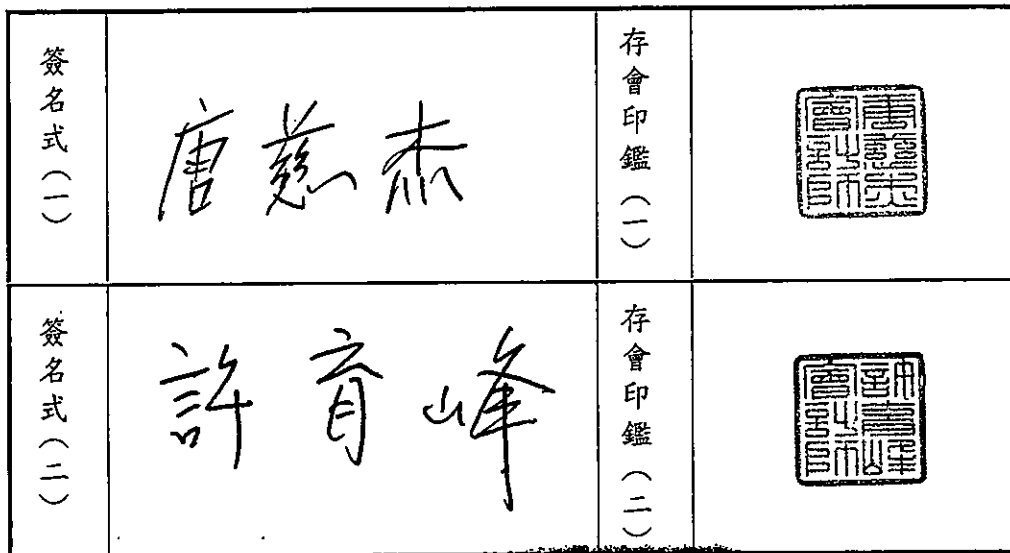 簽名式(一)
唐慈杰
存會印鑑(一)
唐慈杰會計師
簽名式(二)
許育峰
存會印鑑(二)
許育峰會計師